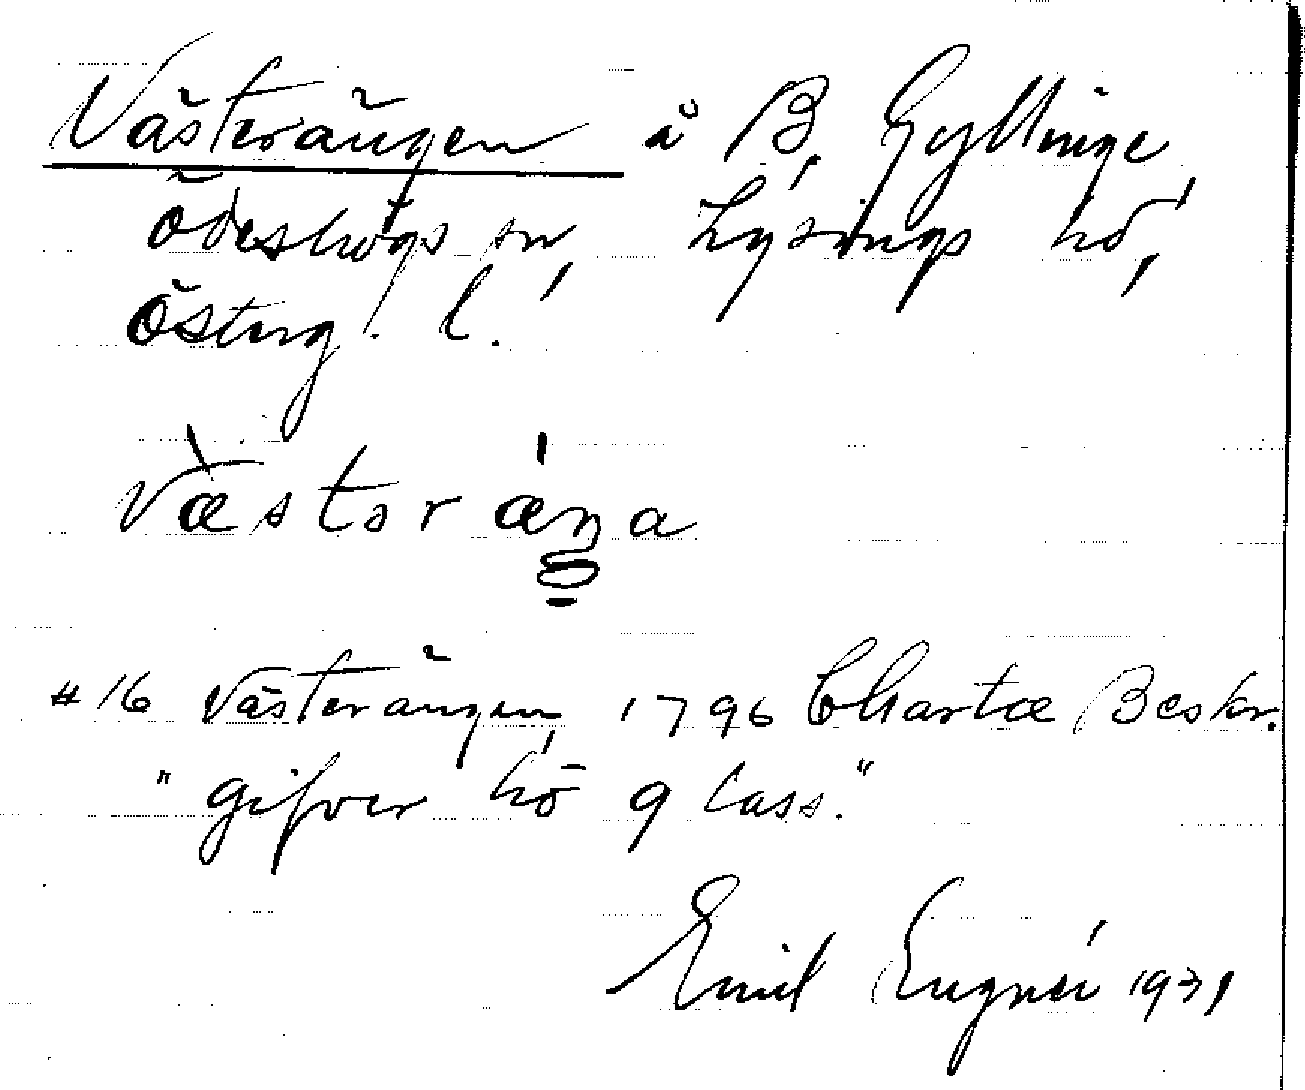 Västerängen å B, Gyllinge,
Ödeshögs sn, Lysings hd,
Österg. l.
Væ̀stərǽŋa
# 16 Västerängen, 1796 Charta Beskr.
"gifver hö 9 lass."
Emil Eugnér 1931